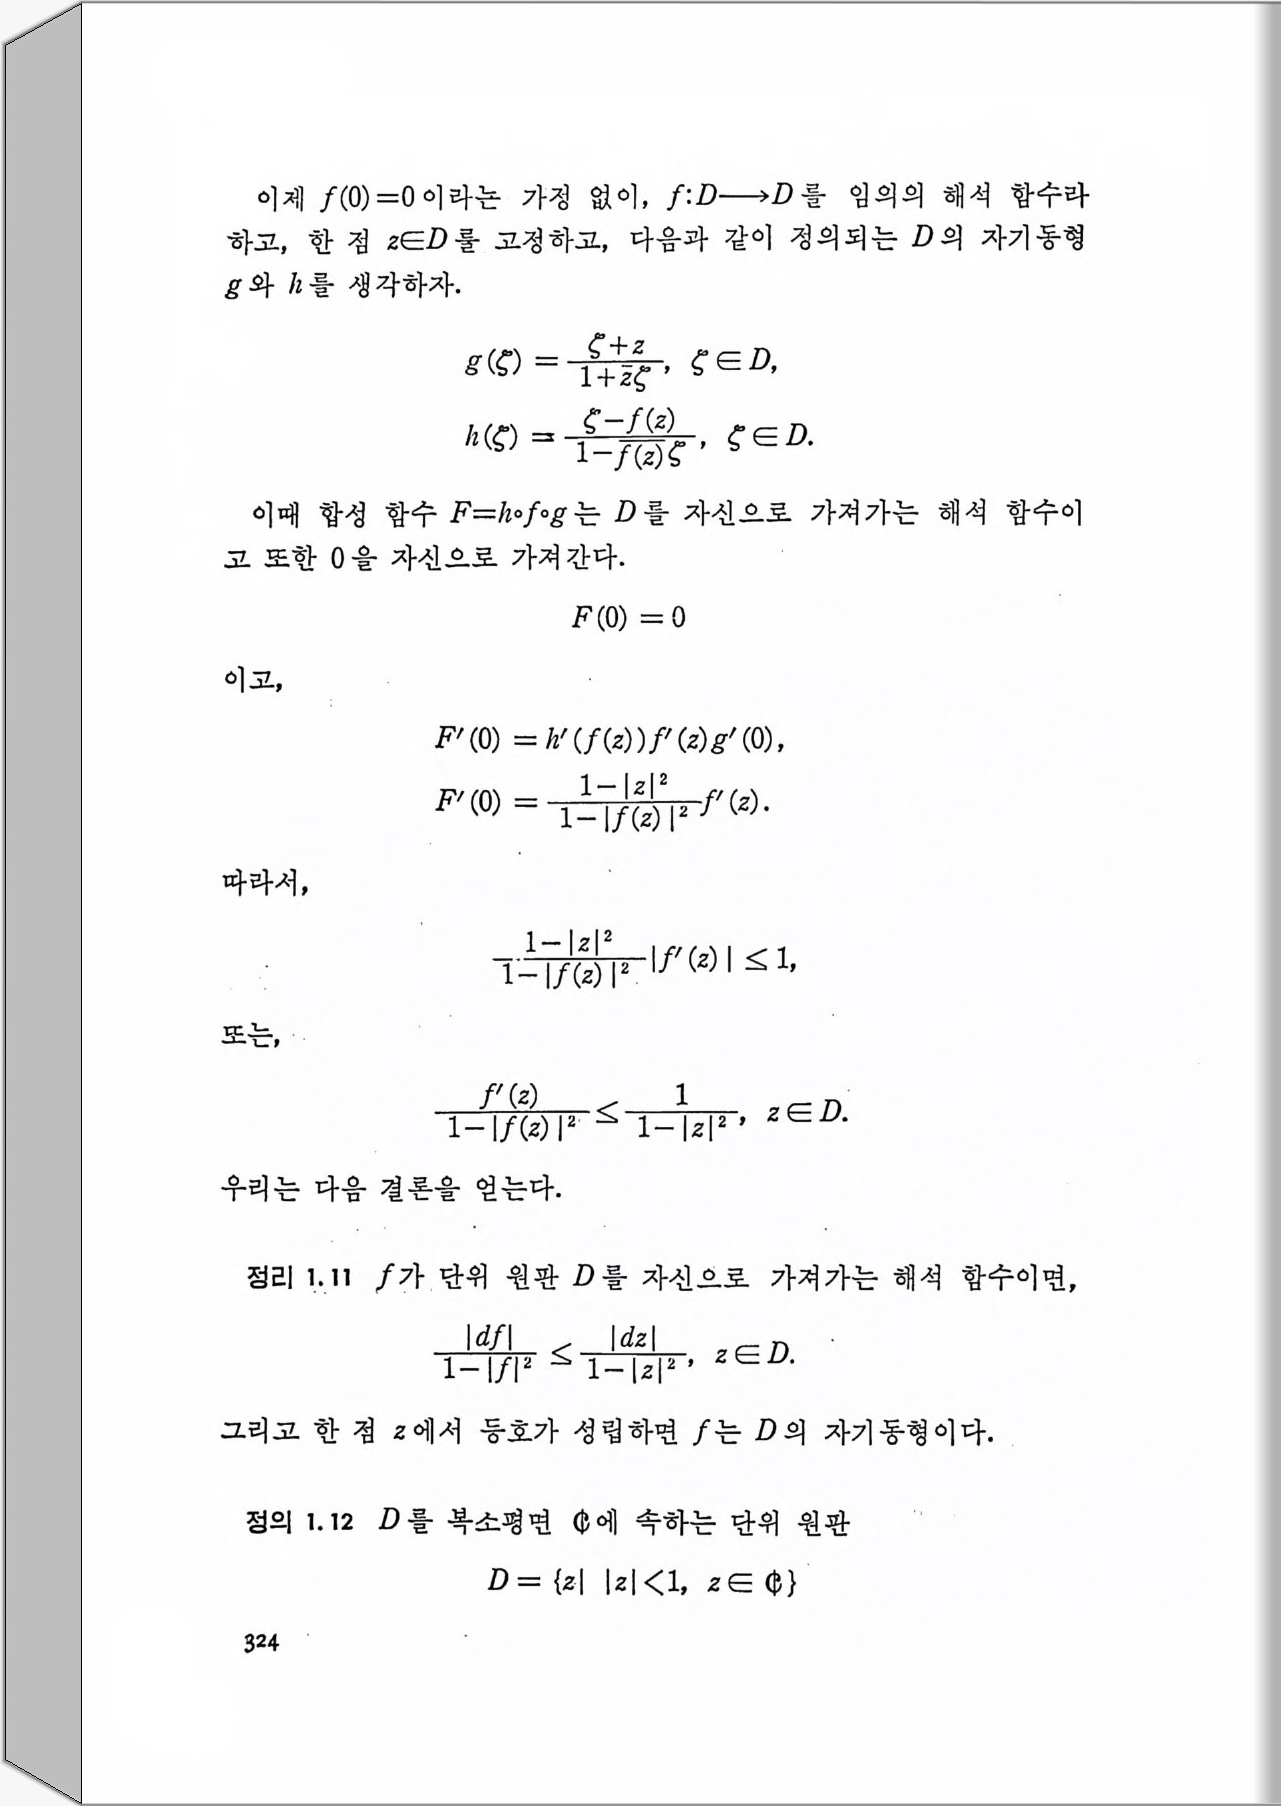 이제 f(0)=0이라는 가정 없이, f:D⟶D를 임의의 해석 함수라
하고, 한 점 z∈D를 고정하고, 다음과 같이 정의되는 D의 자기동형
g와 h를 생각하자.
g(ζ) = (ζ+z)/(1+z̄ζ), ζ∈D,
h(ζ) = (ζ−f(z))/(1−\overline{f(z)}ζ), ζ∈D.
이때 합성 함수 F=h∘f∘g는 D를 자신으로 가져가는 해석 함수이
고 또한 0을 자신으로 가져간다.
F(0) = 0
이고,
F′(0) = h′(f(z))f′(z)g′(0),
F′(0) = (1−|z|²)/(1−|f(z)|²) f′(z).
따라서,
(1−|z|²)/(1−|f(z)|²) |f′(z)| ≤ 1,
또는,
f′(z)/(1−|f(z)|²) ≤ 1/(1−|z|²), z∈D.
우리는 다음 결론을 얻는다.
정리 1.11 f가 단위 원판 D를 자신으로 가져가는 해석 함수이면,
|df|/(1−|f|²) ≤ |dz|/(1−|z|²), z∈D.
그리고 한 점 z에서 등호가 성립하면 f는 D의 자기동형이다.
정의 1.12 D를 복소평면 ₵에 속하는 단위 원판
D = {z| |z|<1, z∈₵}
324